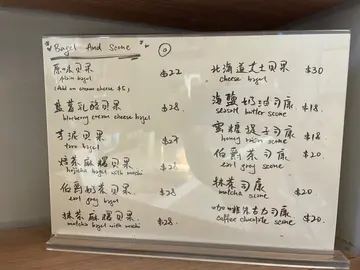 Bagel And Scone
原味贝果 $22
plain bagel
(Add on cream cheese $5)
蓝莓乳酪贝果 $28.
blueberry cream cheese bagel
芋泥贝果
taro bagel
焙茶麻糬贝果 $28
hojicha bagel with mochi
伯爵奶茶贝果 $28
earl grey bagel
抹茶麻糬贝果 $28.
matcha bagel with mochi
北海道芝士贝果 $30
cheese bagel
海盐奶油司康 $18.
seasalt butter scone
蜜糖提子司康 $18
honey raisin scone
伯爵茶司康 $20
earl grey scone
抹茶司康 $20
matcha scone
咖啡朱古力司康 $20.
coffee chocolate scone